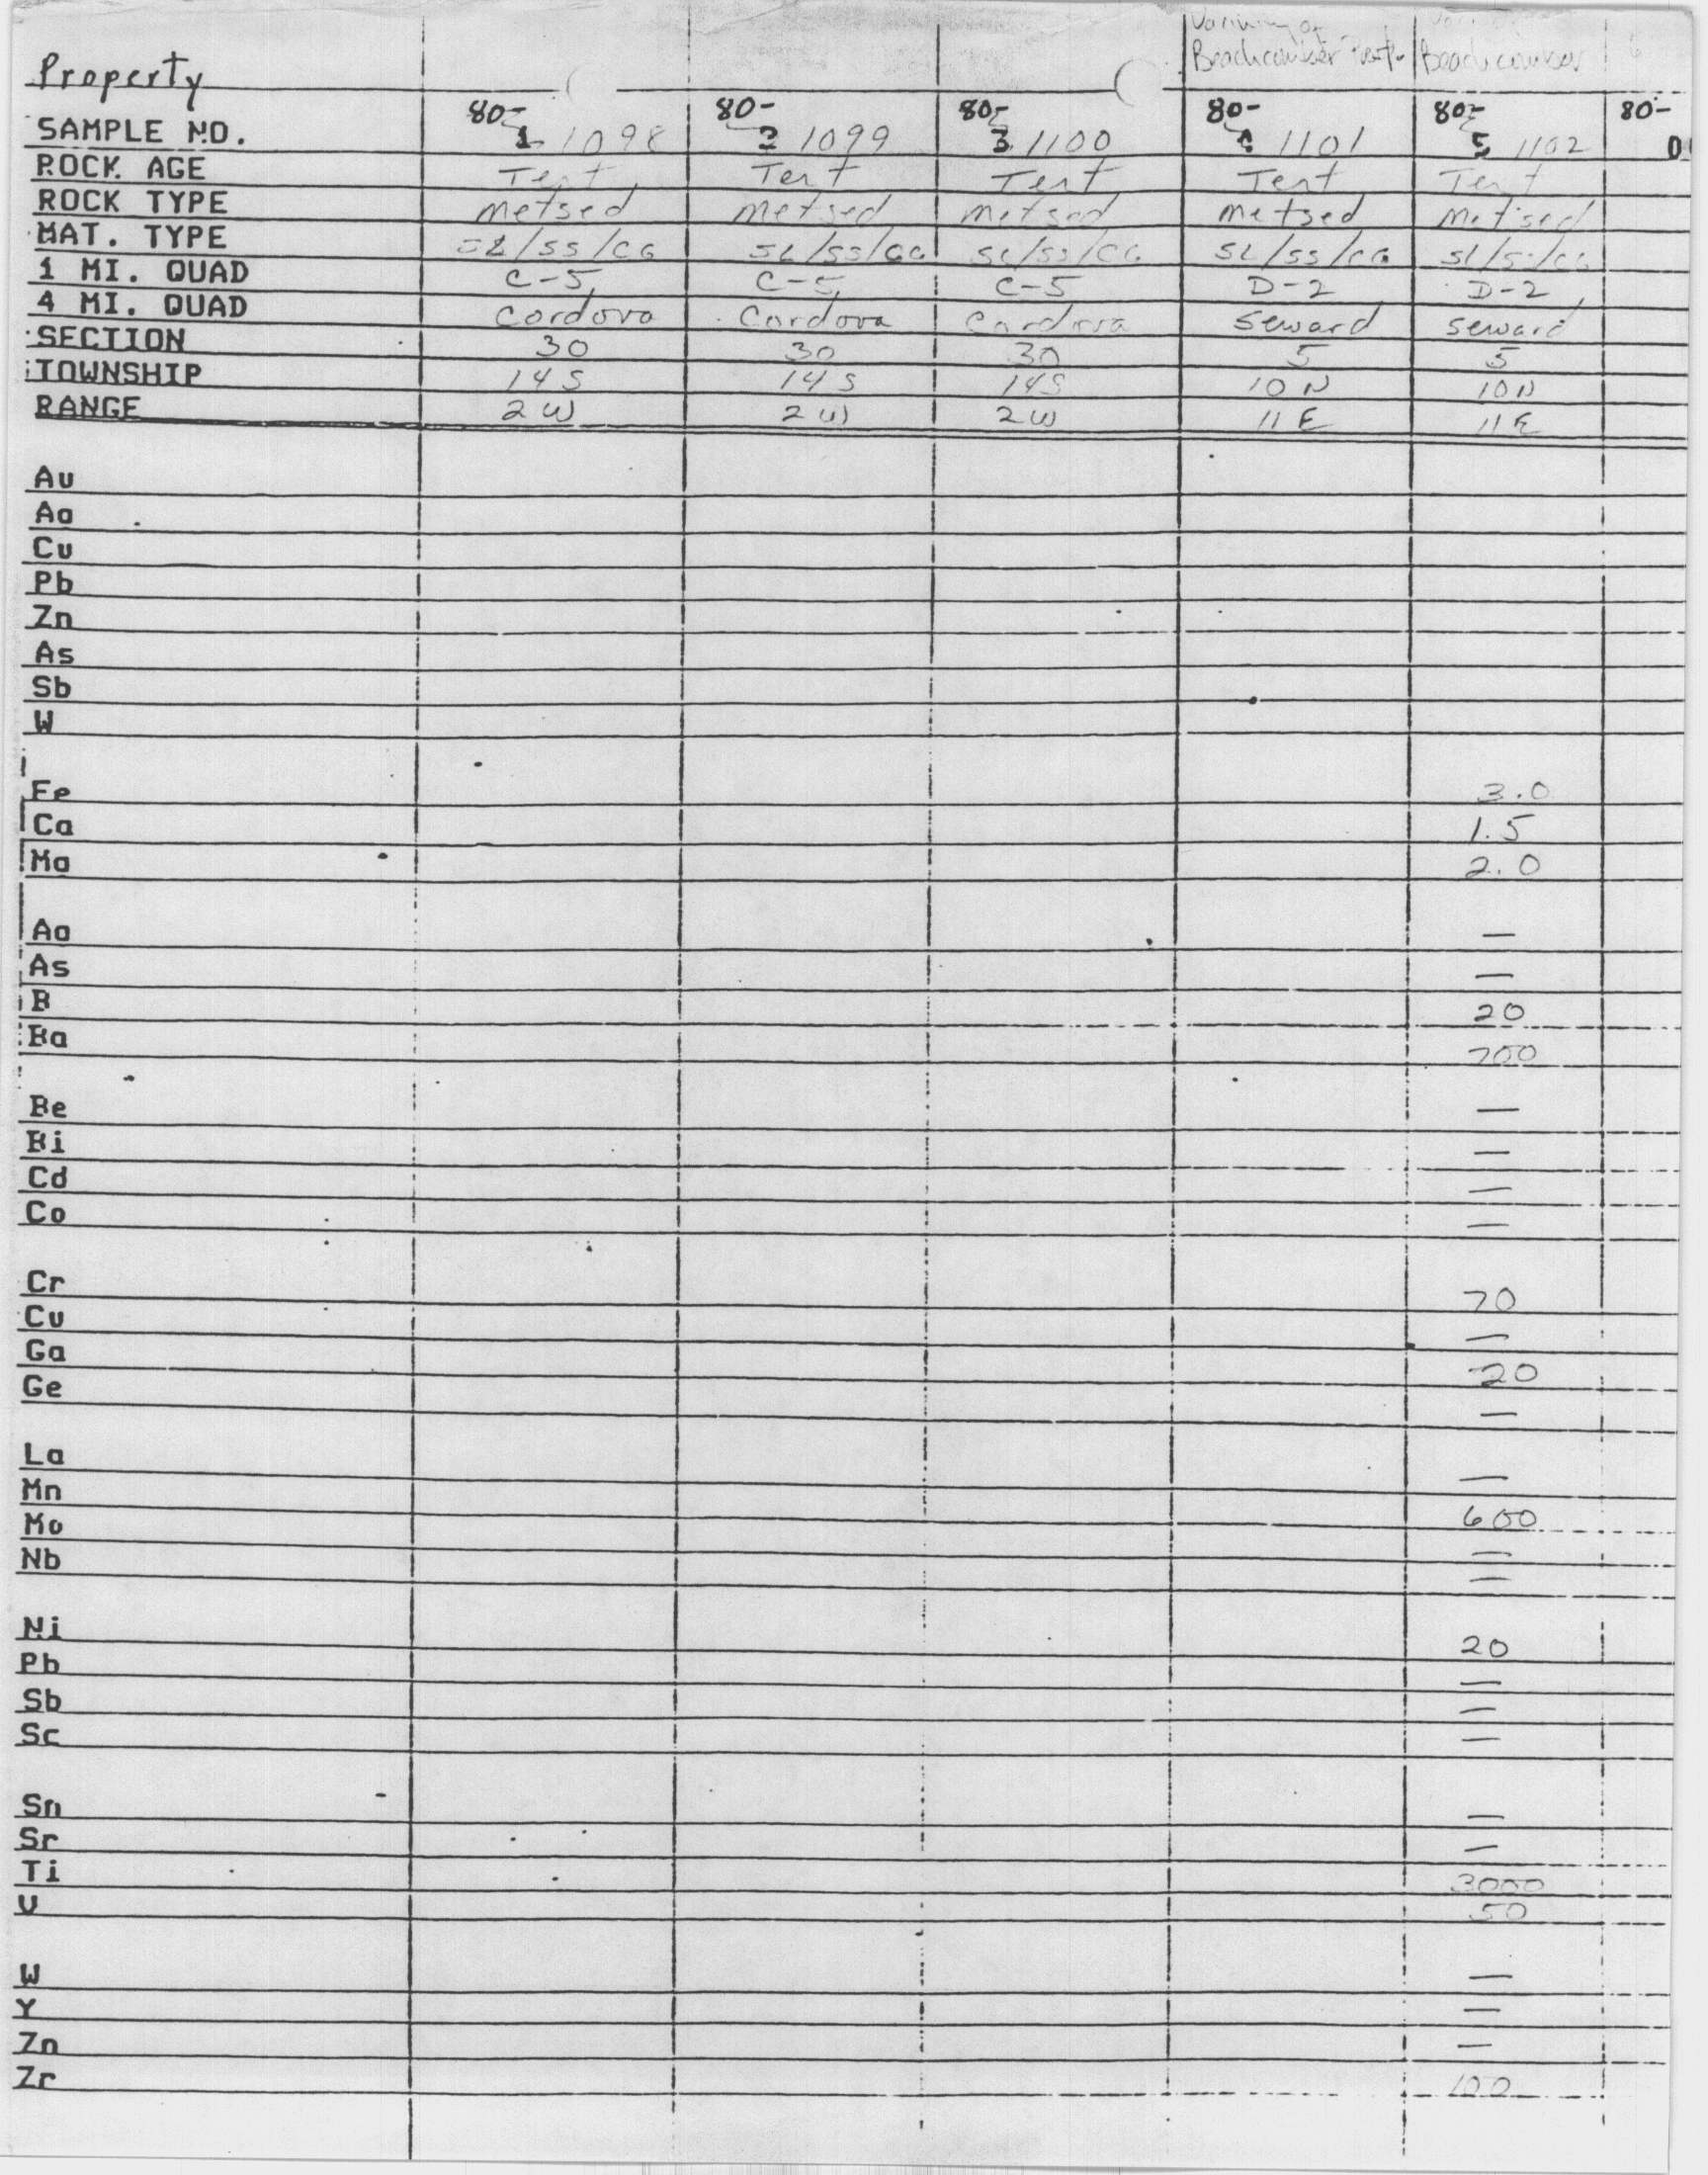 Beachcomber Beachcomber
Property
80- 80- 80- 80- 80- 80-
SAMPLE NO. 1 1098 2 1099 3 1100 1101 5 1102
ROCK AGE Tert Tert Tert Tert Tert
ROCK TYPE metsed metsed metsed metsed metsed
MAT. TYPE SL/SS/CG SL/SS/CG SL/SS/CG SL/SS/CG SL/SS/CG
1 MI. QUAD C-5 C-5 C-5 D-2 D-2
4 MI. QUAD Cordova Cordova Cordova Seward Seward
SECTION 30 30 30 5 5
TOWNSHIP 14S 14S 14S 10N 10N
RANGE 2W 2W 2W 11E 11E
Au
Ag
Cu
Pb
Zn
As
Sb
W
Fe 3.0
Ca 1.5
Mg 2.0
Ag —
As —
B 20
Ba 700
Be —
Bi —
Cd —
Co —
Cr 70
Cu —
Ga 20
Ge —
La —
Mn 600
Mo —
Nb —
Ni 20
Pb —
Sb —
Sc —
Sn —
Sr —
Ti 3000
V 50
W —
Y —
Zn —
Zr 100